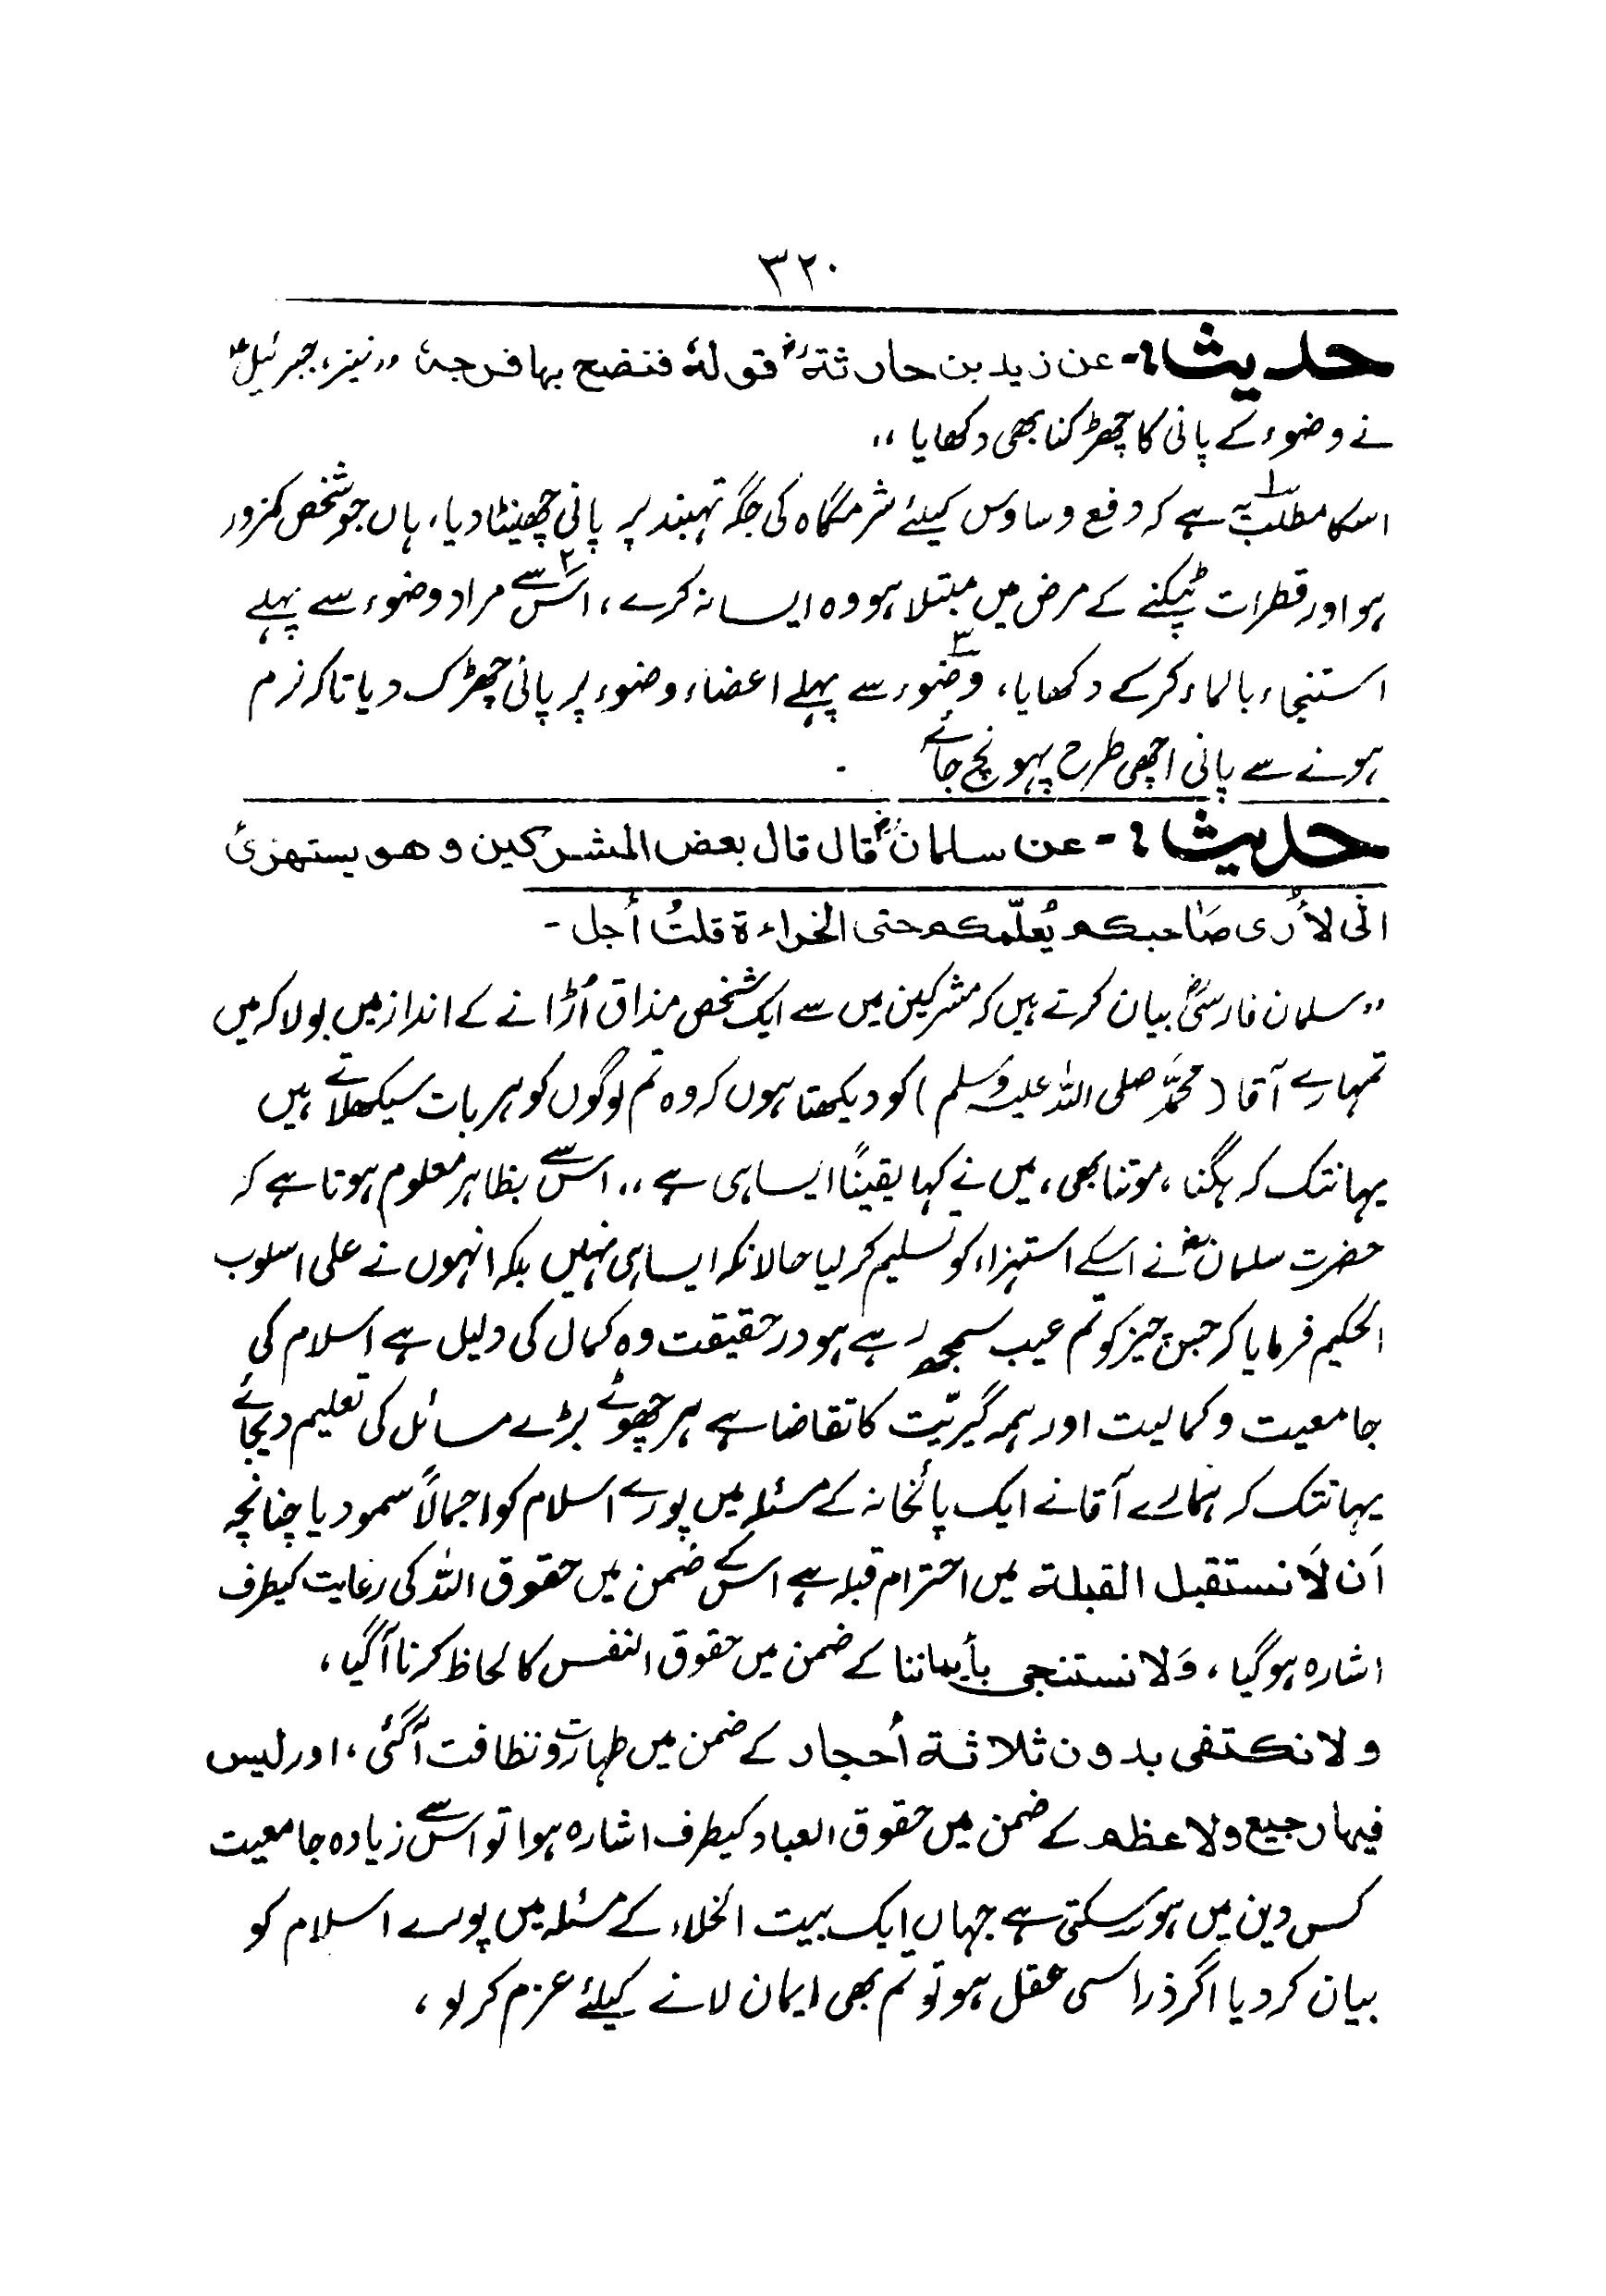 ۳۲۰
حدیث :- عن زید بن حارثۃؓ قولہٗ فنضح بہا فرجہٗ ,, نیز جبرئیلؑ
نے وضوء کے پانی کا چھڑکنا بھی دکھایا ,,
اسکا مطلب ۱؎ یہ ہے کہ دفع وساوس کیلئے شرمگاہ کی جگہ تہبند پر پانی چھینٹا دیا، ہاں جو شخص کمزور
ہو اور قطرات ٹپکنے کے مرض میں مبتلا ہو وہ ایسا نہ کرے، ۲؎ اس سے مراد وضوء سے پہلے
استنجاء بالماء کرکے دکھایا، ۳؎ وضوء سے پہلے اعضاء وضوء پر پانی چھڑک دیا تاکہ نرم
ہونے سے پانی اچھی طرح پہونچ جائے ۔
حدیث :- عن سلمانؓ قال قال بعض المشرکین و ھو یستھزئ
انی لأرٰی صَاحبکم یُعلّمکم حتی الخراءۃ قلتُ أجل -
,, سلمان فارسیؓ بیان کرتے ہیں کہ مشرکین میں سے ایک شخص مذاق اُڑانے کے انداز میں بولا کہ میں
تمہارے آقا (محمّد صلی اللہ علیہ وسلم) کو دیکھتا ہوں کہ وہ تم لوگوں کو ہر بات سیکھلاتے ہیں
یہانتک کہ ہگنا، موتنا بھی، میں نے کہا یقینًا ایسا ہی ہے ,, اس سے بظاہر معلوم ہوتا ہے کہ
حضرت سلمانؓ نے اسکے استہزاء کو تسلیم کر لیا حالانکہ ایسا ہی نہیں بلکہ انہوں نے علی اسلوب
الحکیم فرمایا کہ جس چیز کو تم عیب سمجھ رہے ہو درحقیقت وہ کمال کی دلیل ہے اسلام کی
جامعیت و کمالیت اور ہمہ گیریّت کا تقاضا ہے ہر چھوٹے بڑے مسائل کی تعلیم دیجائے
یہانتک کہ ہمارے آقا نے ایک پائخانہ کے مسئلہ میں پورے اسلام کو اجمالًا سمو دیا چنانچہ
اَن لَا نستقبل القبلۃ میں احترام قبلہ ہے اس کے ضمن میں حقوق اللہ کی رعایت کیطرف
اشارہ ہوگیا، وَلا نستنجی بأیماننا کے ضمن میں حقوق النفس کا لحاظ کرنا آگیا،
ولا نکتفی بدون ثلاثۃ أحجار کے ضمن میں طہارت و نظافت آگئی، اور لیس
فیہا رجیع ولا عظم کے ضمن میں حقوق العباد کیطرف اشارہ ہوا تو اس سے زیادہ جامعیت
کس دین میں ہو سکتی ہے جہاں ایک بیت الخلاء کے مسئلہ میں پورے اسلام کو
بیان کر دیا اگر ذرا سی عقل ہو تو تم بھی ایمان لانے کیلئے عزم کر لو،